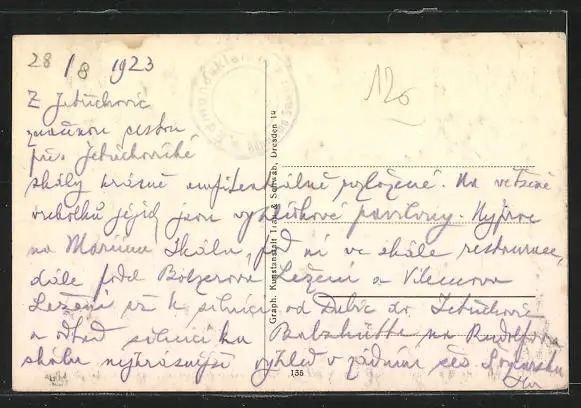 28/8 1923
120
Z Jetřichovic
značenou cestou
přes Jetřichovické
skály krásně amfiteatrálně rozložené. Na většině
vrcholků jejich jsou vyhlídkové pavilony. Nejprve
na Mariinu Skálu, pod ní ve skále restaurace,
dále pod Balzerovo Ležení a Vilemova
Ležení až k silnici od Dubic do Jetřichovic
a odtud silnicí ku na Rudolfův
vyhled v zadním
Graph. Kunstanstalt Trau & Schwab, Dresden 14
135